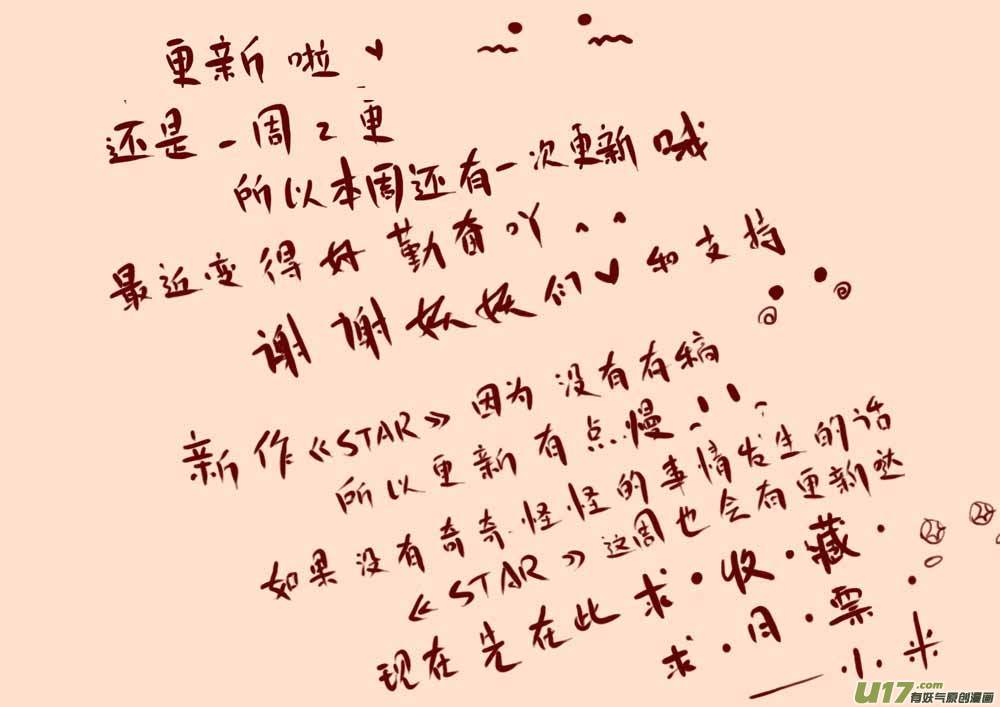 更新啦♥
还是一周2更
所以本周还有一次更新哦
最近变得好勤奋吖^^
谢谢妖妖们♥和支持
新作《STAR》因为没有存稿
所以更新有点慢
如果没有奇奇怪怪的事情发生的话
《STAR》这周也会有更新哒
现在先在此求·收·藏·
求·月·票·
——小米
U17.com
有妖气原创漫画